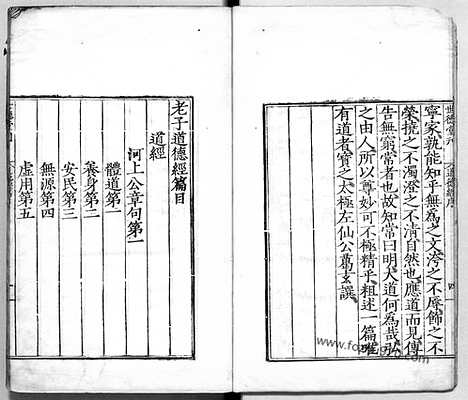 寧家孰能知乎無為之文涔之不辱飾之不
榮撓之不濁澄之不清自然也應道而見傳
告無窮常者也故知常曰明大道何為哉弘
之由人所以尊妙可不極精乎粗述一篇唯
有道者寳之太極左仙公葛玄譔
老子道德經篇目
道經
河上公章句第一
體道第一
養身第二
安民第三
無源第四
虛用第五